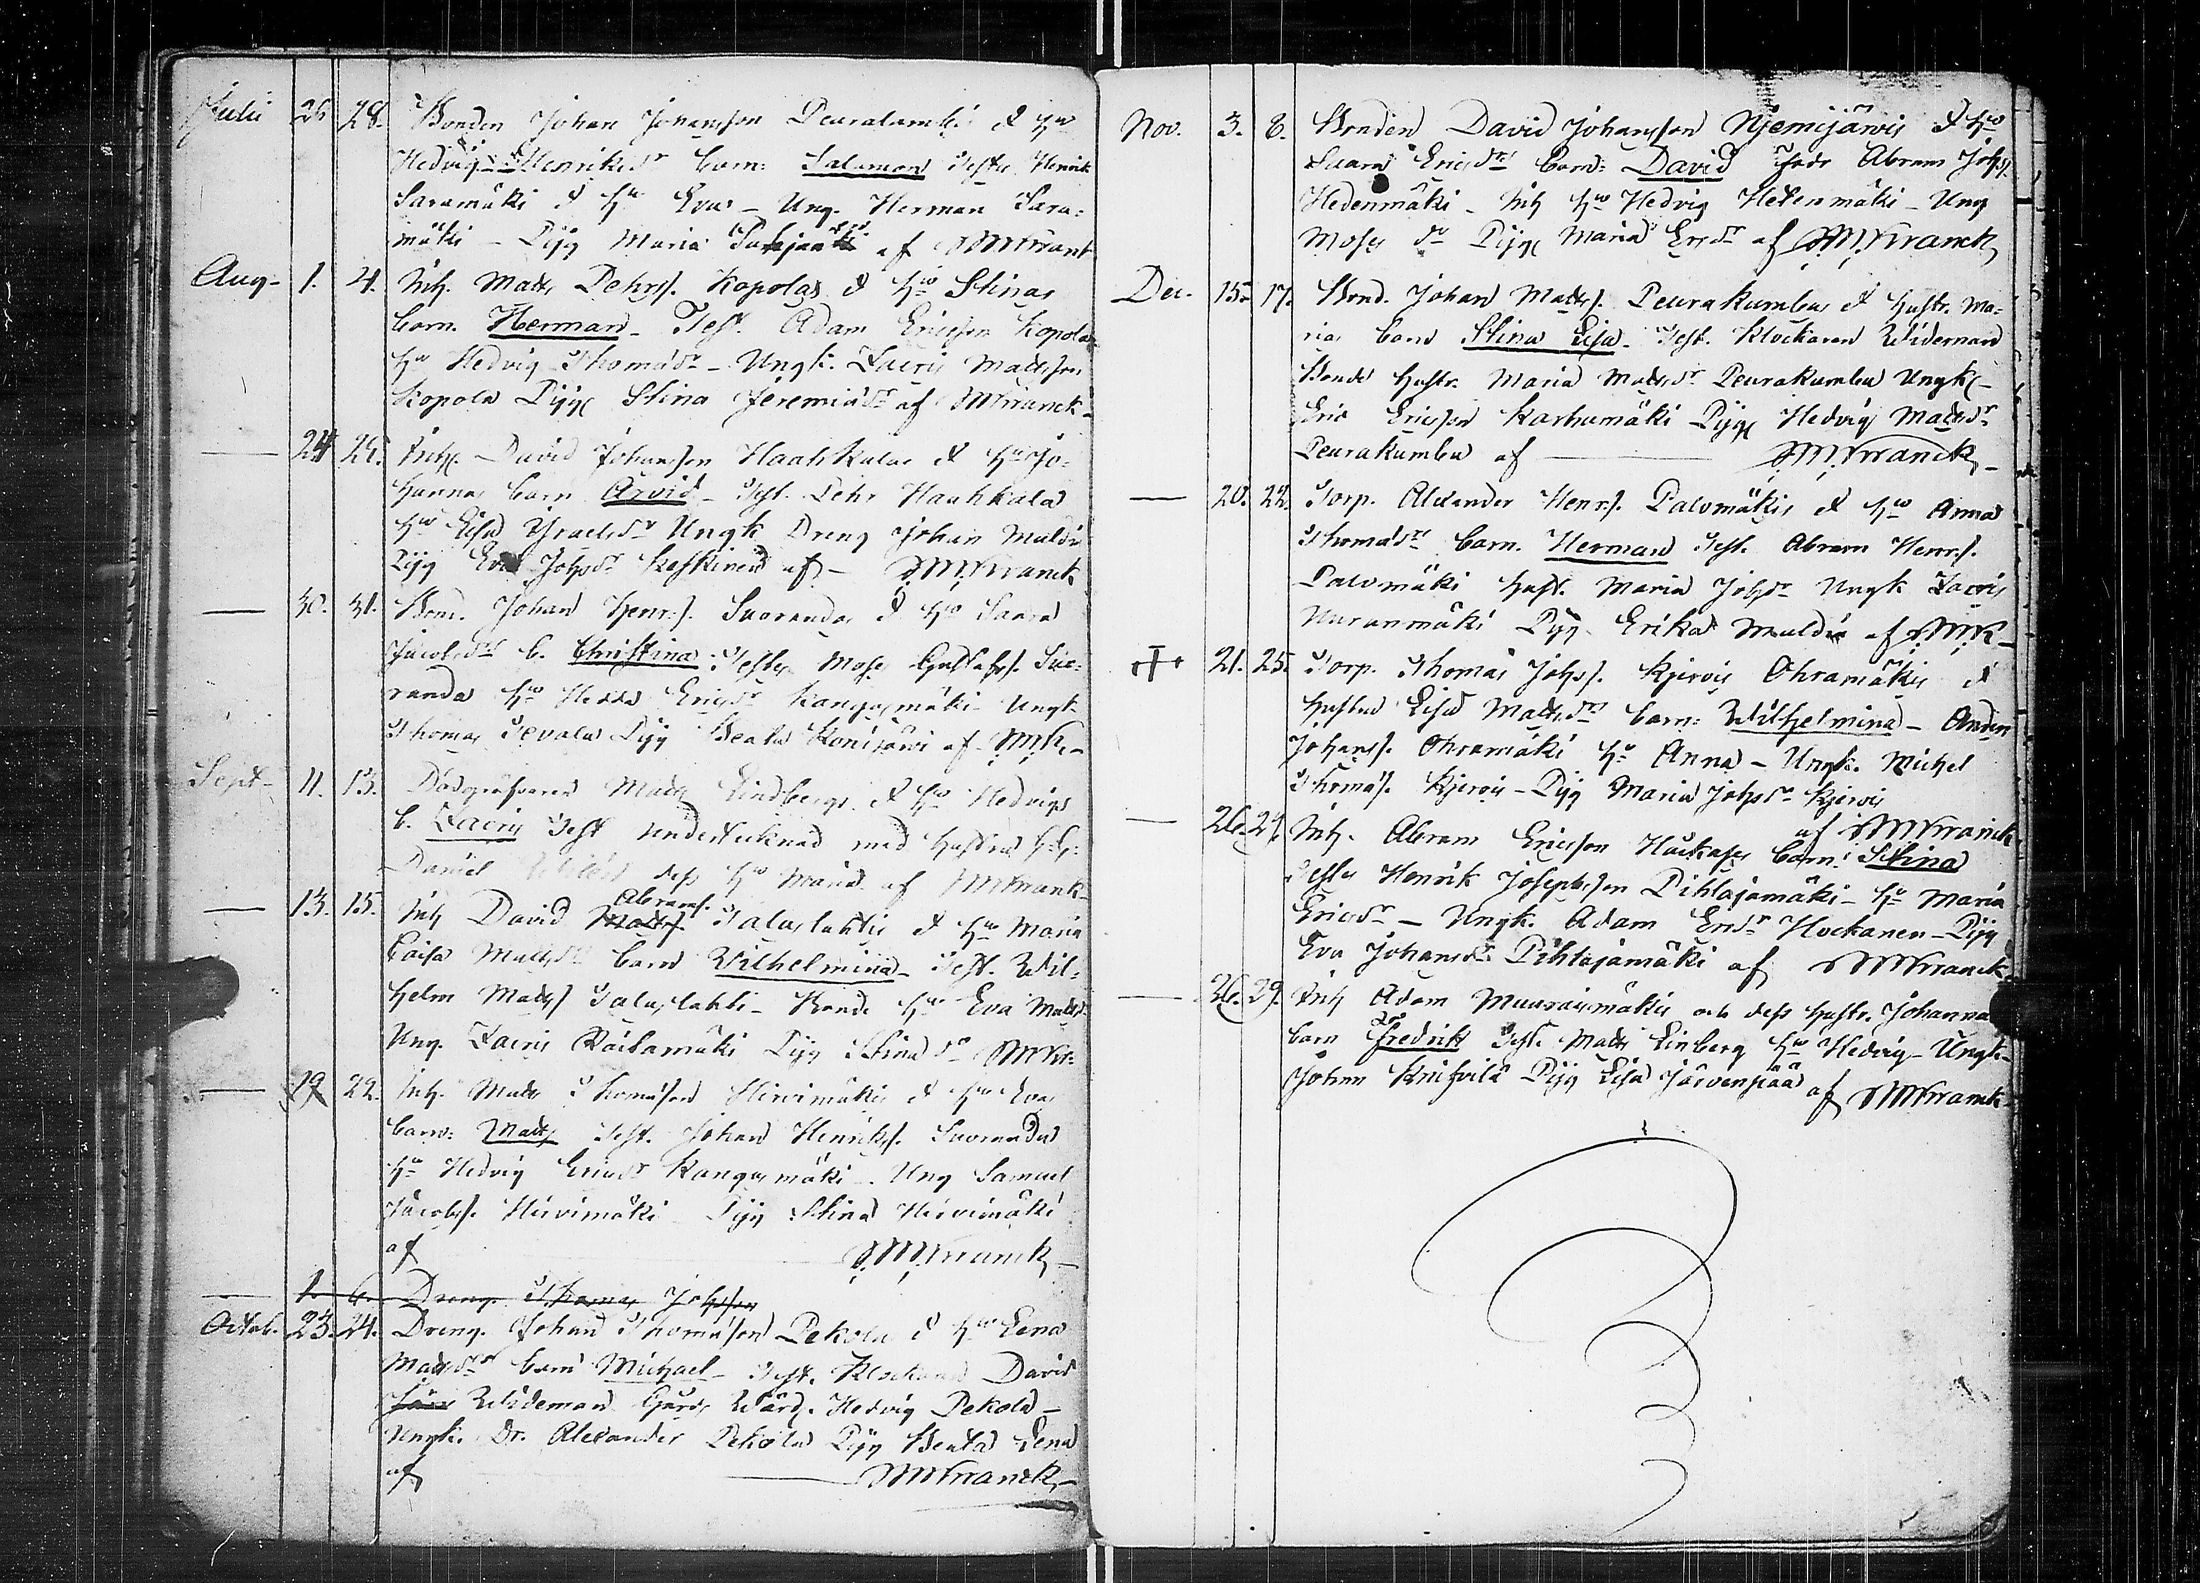 Julii 26 28. Bonden Johan Johansson Peuralamki & hu
Hedvig Henriksdr barn: Salomon Testes Henrik
Saramäki & hu Eva – Ung. Herman Sara-
mäki – Pig Maria af M Franck
Aug– 1. 4. Inh. Matts Pehrs. Kopola & hu Stina
barn. Herman – Test. Adam Ericsson Kopola
hu Hedvig Thomadr – Ungk. Zacris Mattsson
Kopola Pig Stina Jeremiadr af M Franck
— 24 25. Inh. David Johansson Haahkala & hu Jo-
hanna barn Arvid – Test. Pehr Haahkala
hu Lisa Ysraelsdr Ungk Dreng Johan
Pig Eva Johsdr Keskinen af – M Franck
— 30. 31. Bond. Johan Henrs. Suoranda & hu Saara
Jacobsdr b. Christina Testes Moses Gustafss. Suo-
randa hu Hedda Ericsdr Kangasmäki Ungk
Thomas Tevala Pig Beata af M.K.–
Sept– 11. 13. Dödgräfvaren Matts Lindberg & hu Hedvig
b. Zacris Test undertecknad med hustru
Daniel dess hu Maria af M Franck
— 13. 15. Inh David Matts. Abrams. Talaslahti & hu Maria
Caisa Mattsdr barn Wilhelmina – Test. Wil-
helm Matts Talaslahti – Bonde hu Eva Mattsd
Ung. Zacris Pig Stina do M Fr:
— 19 22. Inh. Matts Thomasson Hirvimäki & hu Eva
barn: Matts Test. Johan Henrikss. Suoranda
hu Hedvig Ericsdr Kangasmäki. Ung Samuel
Jacobss. Hirvimäki Pig Stina Hirvimäki
af M Franck
— 1. 6. Dreng. Thomas Johsson
Octob. 23. 24. Dreng. Johan Thomasson Pekola & hu Lena
Mattsdr barn Michael – Test. Klockaren David
Wideman Gårds Wärd. Hedvig Pekola –
Ungk. Dr. Alexander Pekola Pig Beata Lena
af M Franck
Nov. 3. 8. Bonden David Johansson Njemijärvi & hu
Saara Ericsdr barn: David Test Abram Johs.
Hedenmäki – Inh hu Hedvig Hedenmäki – Ung
Moses do Pig Maria Ersdr af M Franck
Dec. 15. 17. Bond. Johan Matts. Peurakumbu & hustr. Ma-
ria barn Stina Lisa – Test. Klockaren Wideman
Bonde hustr. Maria Mattsdr Peurakumbu Ungk –
Eric Ericsson Karhumäki Pig Hedvig Mattsdr
Peurakumbu af M Franck –
— 20. 22. Torp. Alexander Henrs. Palomäki & hu Anna
Thomasdr barn. Herman Test. Abram Henrs.
Palomäki hust. Maria Johsdr Ungk Zacris
Pig. Erika af M K –
21. 25. Torp. Thomas Johs. Kjervis Ohramäki &
hustru Lisa Mattsdr barn: Wilhelmina –
Johanss. Ohramäki hu Anna – Ungk. Michel
Thomas. Kjervis – Pig Maria Johsdr Kjervis
af M Franck
— 26. 27. Inh. Abram Ericsson barn: Stina
Testes Henrik Josephsson Pihlajamäki – hu Maria
Ericsdr – Ungk. Adam Ersdr Hockanen – Pig
Eva Johansdr Pihlajamäki af M Franck
— 26. 29. Inh Adam Muuraismäki och dess hustr. Johanna
barn Fredrik Test. Matts Linberg hu Hedvig – Ungk –
Johan Pig Lisa Järvenpää af M Franck